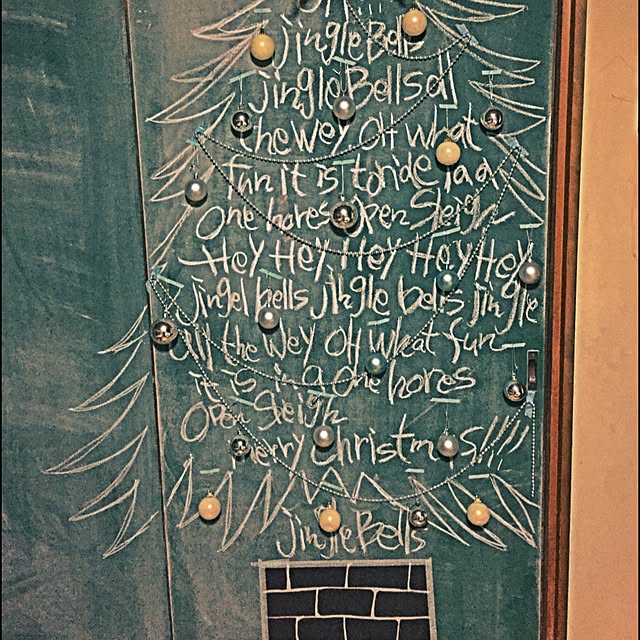 Jingle Bells
jingle Bells all
the wey OH what
fun it is to ride in a
One hores open Sleigh
HeY HeY HeY HeY HeY
jingel bells jingle bells jingle
all the wey OH what fun
it is in g One hores
Open Sleigh
merry christmas!!!!
Jingle Bells